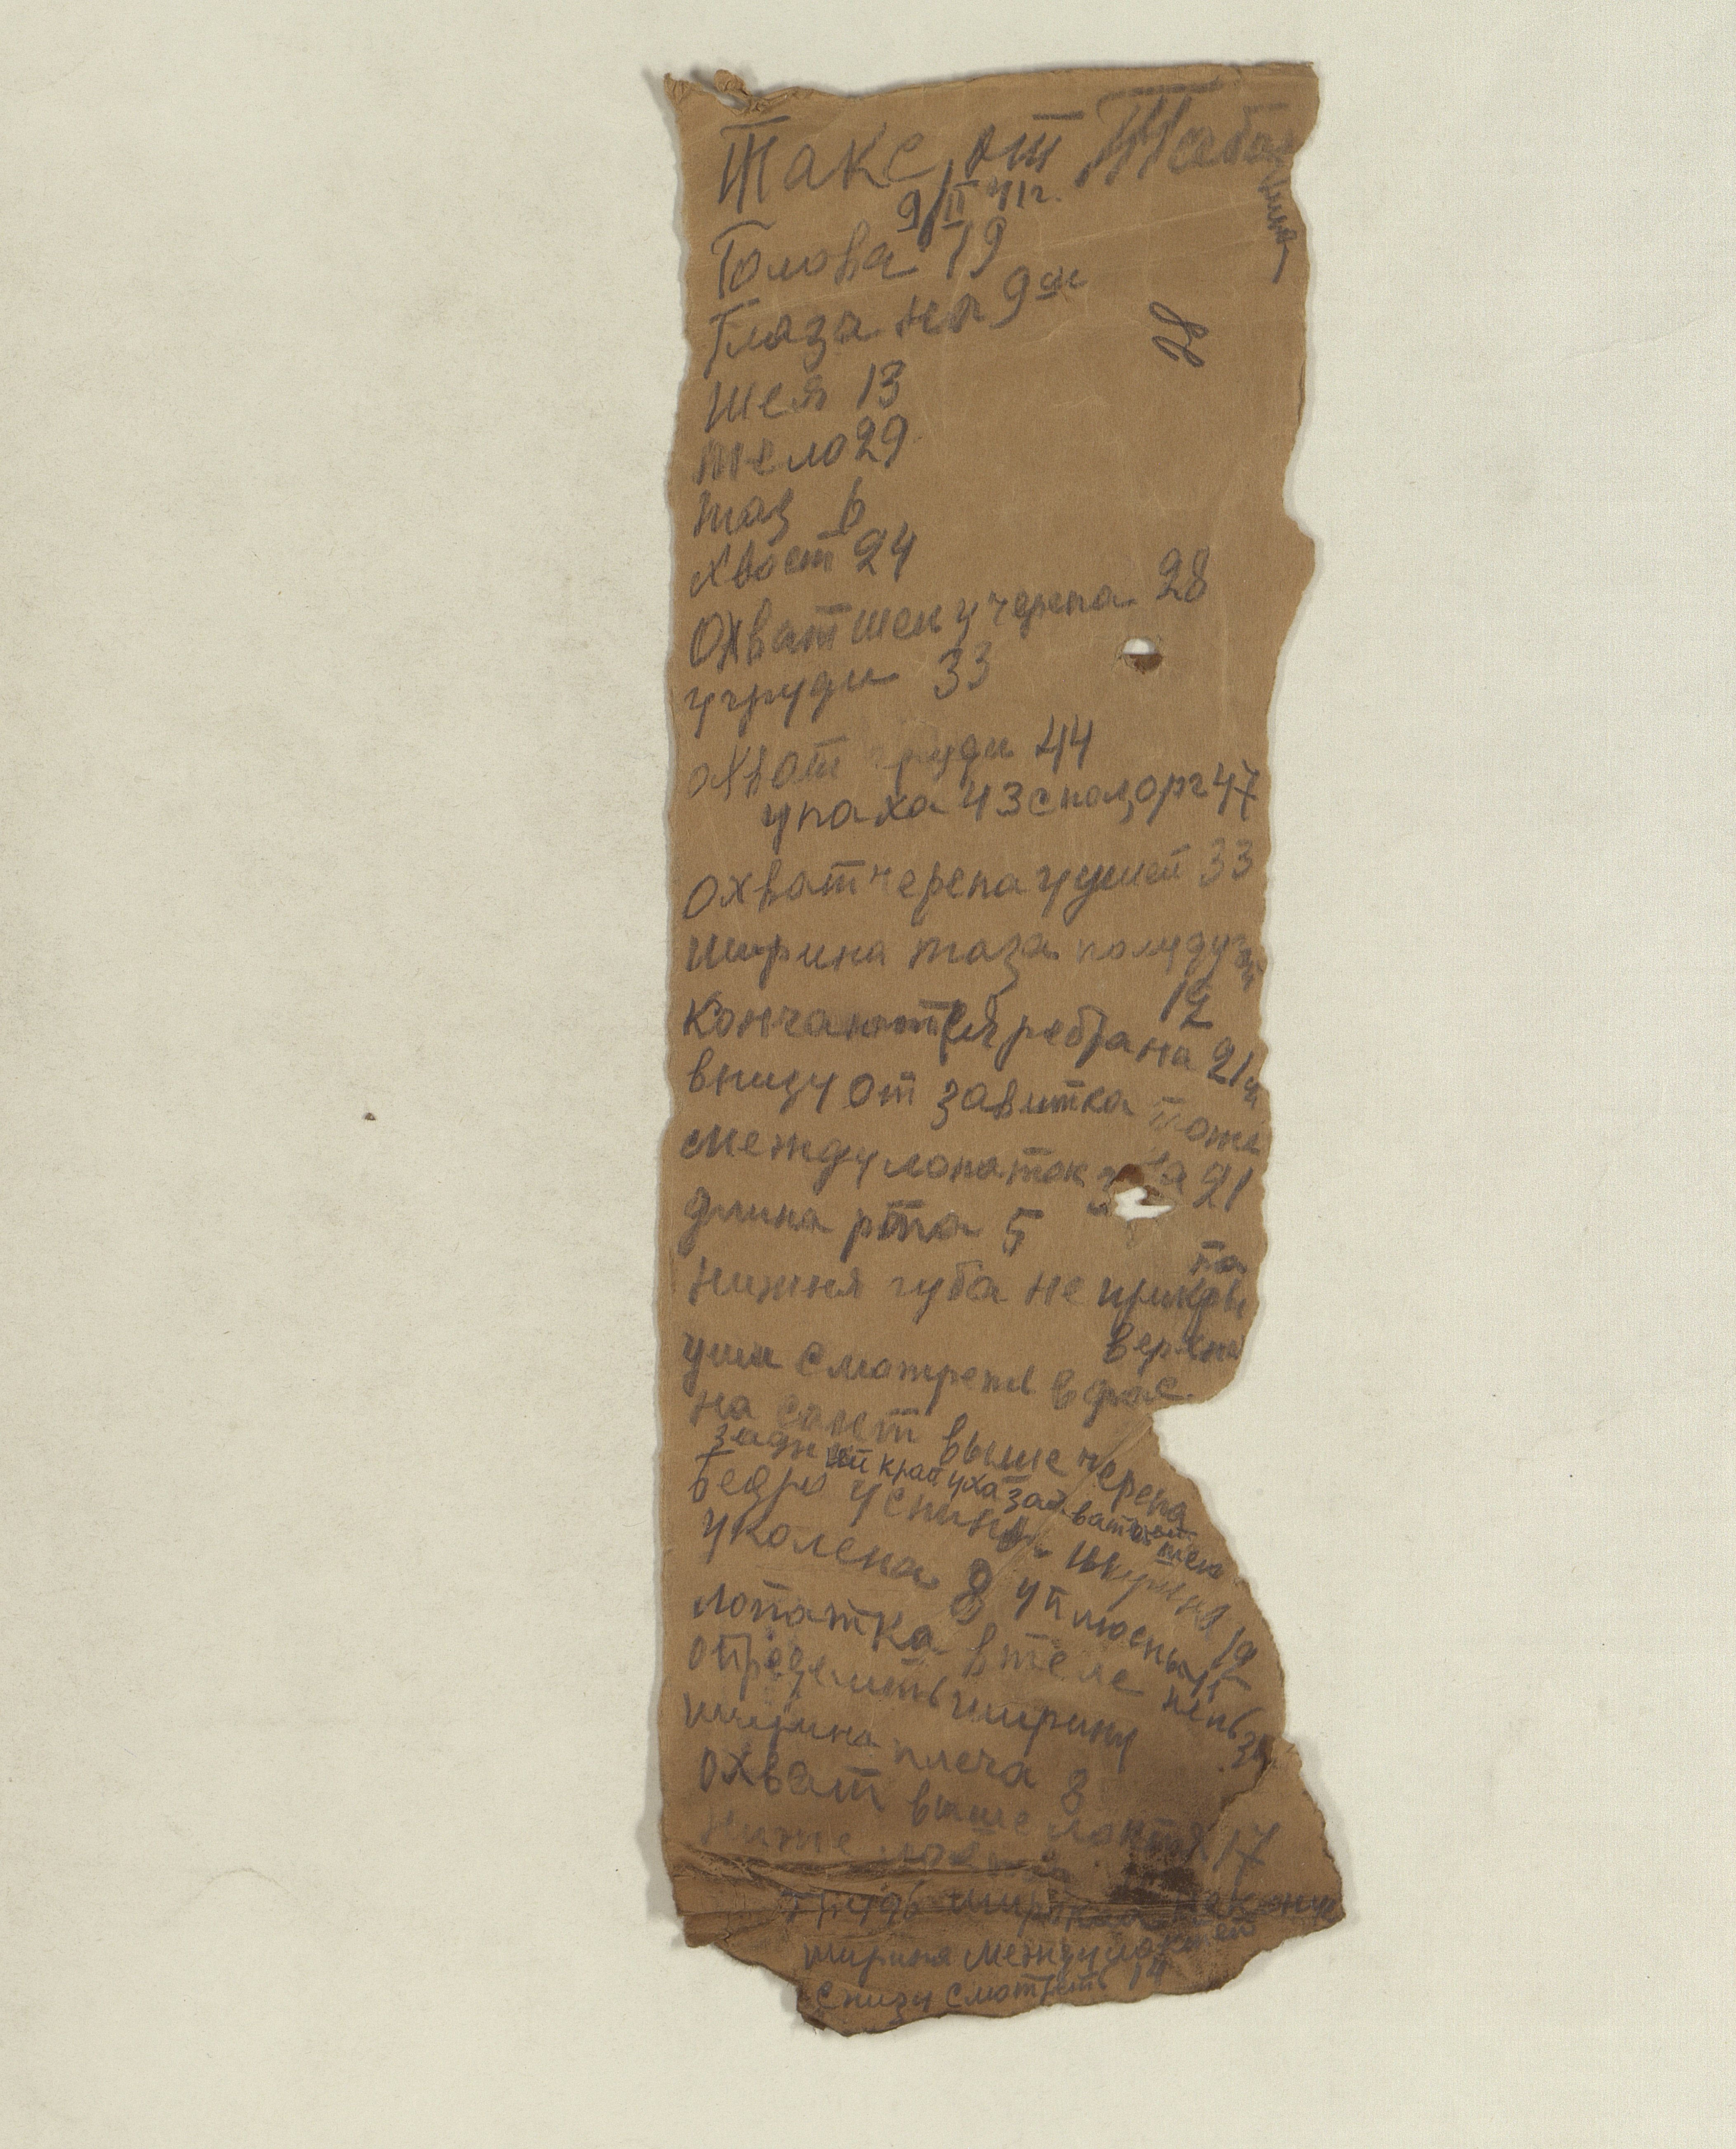 Такс, от
9/II 41г.
Голова 19
Глаза на 9 см
шея 13
тело 29
таз 6
хвост 24
Охват шеи у черепа 28
у груди 33
охват груди 44
у паха 43 с пол, орг 47
охват черепа у ушей 33
ширина таза
12
Кончаются ребра на 21
внизу от завитка тоже
между лопаток на 21
длина рта 5
нижня губа не прикры
та
верхне
уши смотреть в фас
на выше черепа
задний край уха
бедро у спины ширина 19
у колена 8 у плюсны
лопатка в теле нельзя
определить ширину
ширина плеча 8
охват выше локтя 17
ниже локтя
грудь широкая
ширина между локтей
снизу смотреть 14